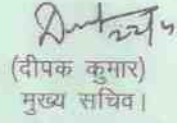 22/5
(दीपक कुमार)
मुख्य सचिव।